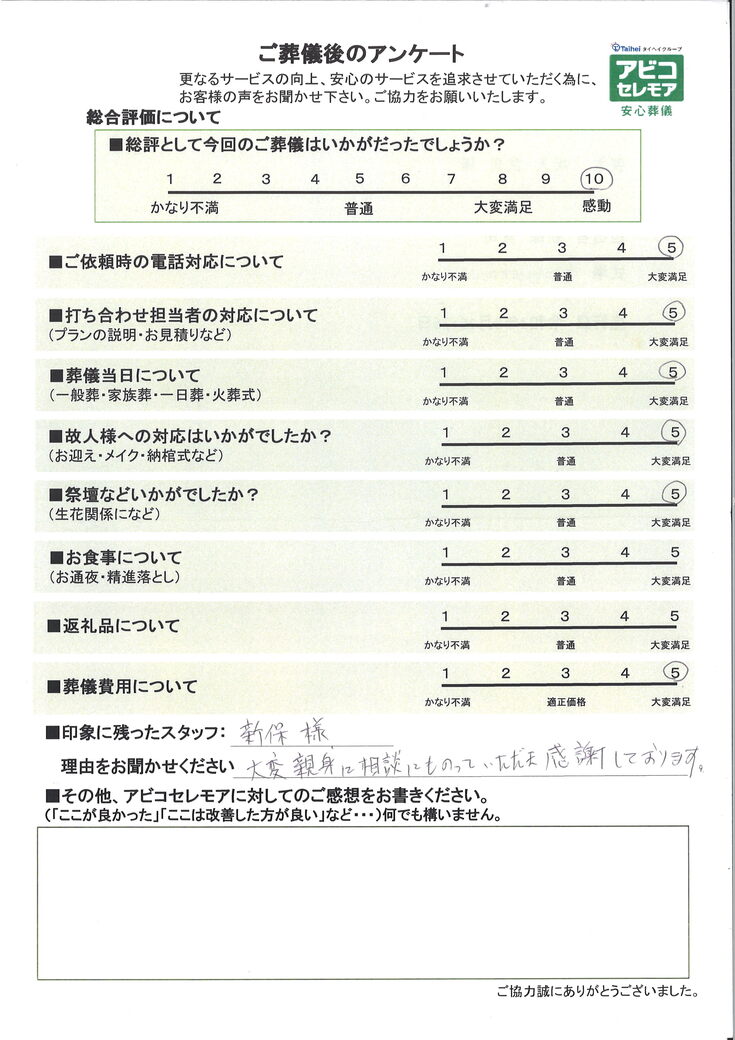 ご葬儀後のアンケート
Taihei タイヘイグループ
アビコ
セレモア
安心葬儀
更なるサービスの向上、安心のサービスを追求させていただく為に、
お客様の声をお聞かせ下さい。ご協力をお願いいたします。
総合評価について
■総評として今回のご葬儀はいかがだったでしょうか？
1 2 3 4 5 6 7 8 9 10
かなり不満 普通 大変満足 感動
■ご依頼時の電話対応について
1 2 3 4 5
かなり不満 普通 大変満足
■打ち合わせ担当者の対応について
(プランの説明・お見積りなど)
1 2 3 4 5
かなり不満 普通 大変満足
■葬儀当日について
(一般葬・家族葬・一日葬・火葬式)
1 2 3 4 5
かなり不満 普通 大変満足
■故人様への対応はいかがでしたか？
(お迎え・メイク・納棺式など)
1 2 3 4 5
かなり不満 普通 大変満足
■祭壇などいかがでしたか？
(生花関係になど)
1 2 3 4 5
かなり不満 普通 大変満足
■お食事について
(お通夜・精進落とし)
1 2 3 4 5
かなり不満 普通 大変満足
■返礼品について
1 2 3 4 5
かなり不満 普通 大変満足
■葬儀費用について
1 2 3 4 5
かなり不満 適正価格 大変満足
■印象に残ったスタッフ： 新保 様
理由をお聞かせください 大変親身に相談にものっていただき感謝しております。
■その他、アビコセレモアに対してのご感想をお書きください。
(「ここが良かった」「ここは改善した方が良い」など・・・)何でも構いません。
ご協力誠にありがとうございました。